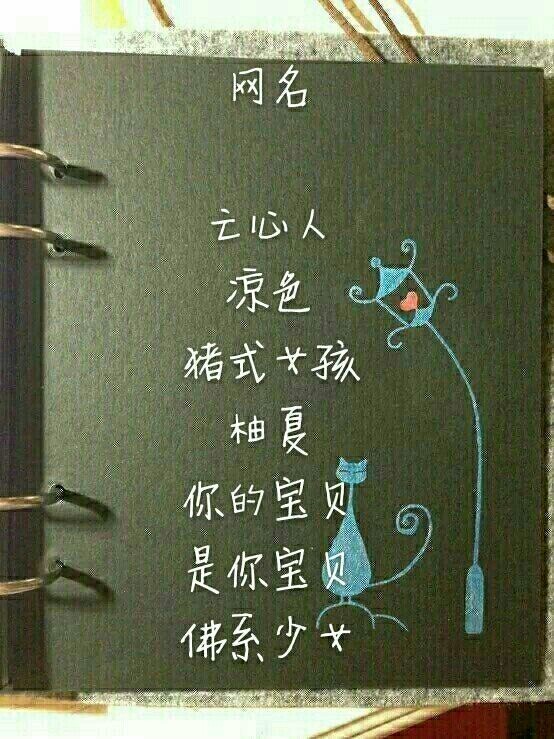 网名
亡心人
凉色
猪式女孩
柚夏
你的宝贝
是你宝贝
佛系少女